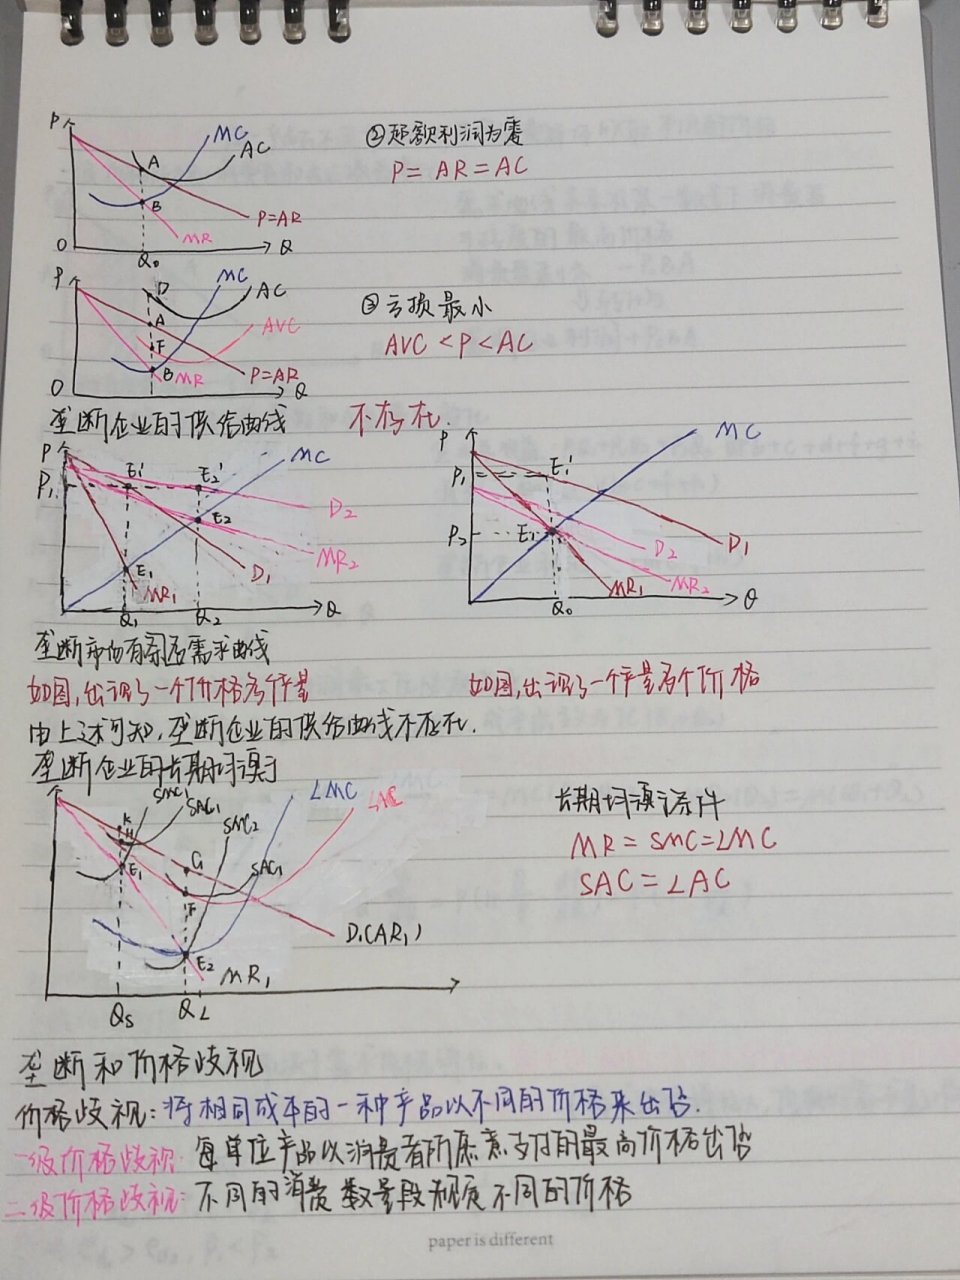 P
MC
AC
A
B
P=AR
MR
O
Q₀
Q
②超额利润为零
P=AR=AC
P
MC
AC
D
A
AVC
F
B
MR
P=AR
O
Q
③亏损最小
AVC<P<AC
垄断企业的供给曲线 不存在.
P
P₁
E₁'
E₂'
MC
D₂
E₂
MR₂
E₁
MR₁
D₁
Q₁
Q₂
Q
P
MC
P₁
E₁'
P₂
D₂
D₁
MR₁
MR₂
Q₀
Q
垄断市场有向右需求曲线
如图,出现了一个价格多个产量
如图,出现了一个产量多个价格
由上述可知,垄断企业的供给曲线不存在.
垄断企业的长期均衡
SMC₁
SAC₁
SMC₂
LMC
LAC
K
H
E₁
G
SAC₁
F
D₁(AR₁)
E₂
MR₁
Qs
QL
长期均衡条件
MR=SMC=LMC
SAC=LAC
垄断和价格歧视
价格歧视:将相同成本的一种产品以不同的价格来出售.
一级价格歧视:每单位产品以消费者所愿意支付的最高价格出售
二级价格歧视:不同的消费数量段规定不同的价格
paper is different